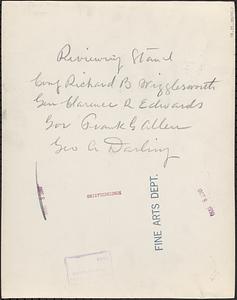 Reviewing Stand
Cong Richard B Wigglesworth
Gen Clarence R Edwards
Gov Frank G Allen
Geo A Darling
FINE ARTS DEPT.
OCT 5